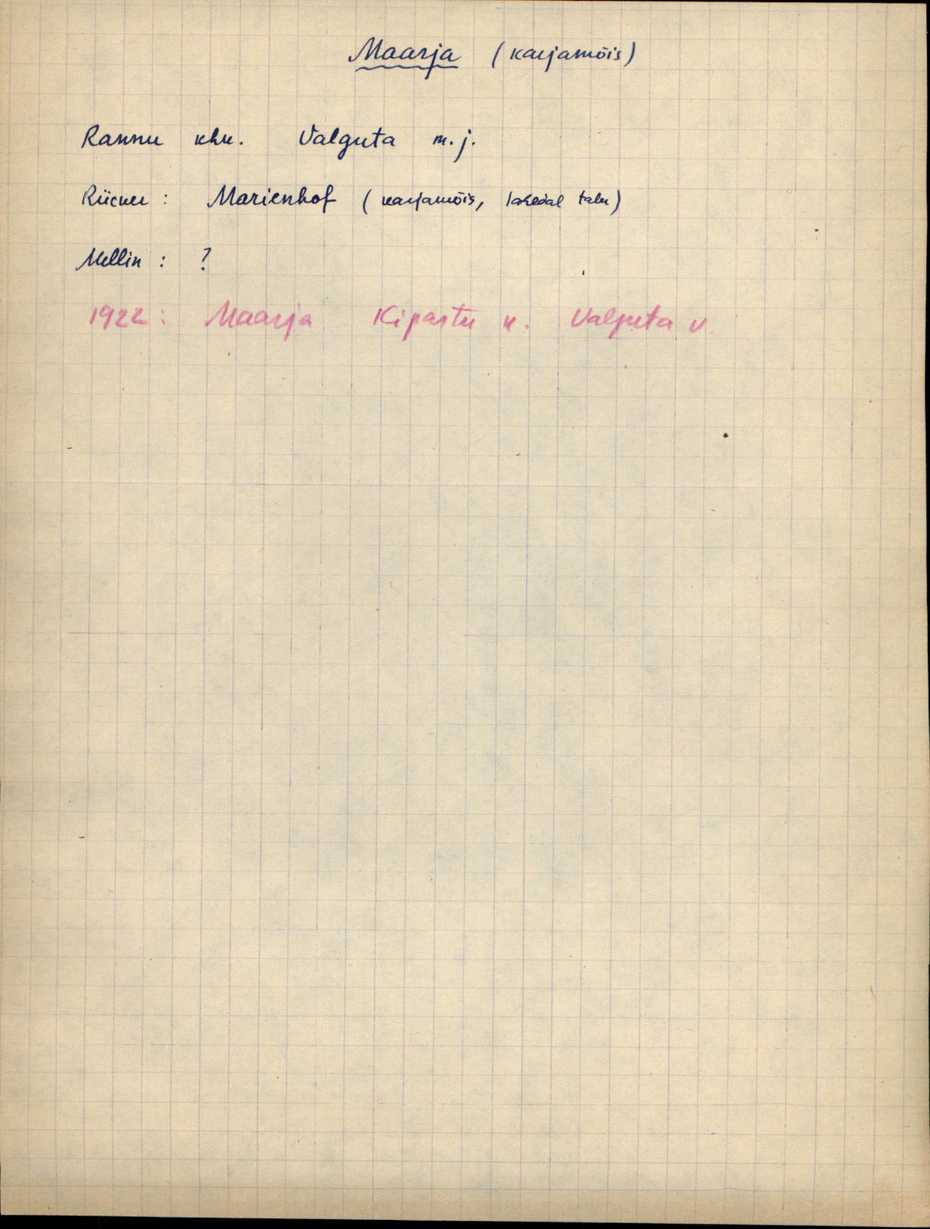 Maarja (karjamõis)
Rannu khk. Valguta m.j.
Rücker: Marienhof (karjamõis, lähedal talu)
Mellin: ?
1922: Maarja Kipastu k. Valguta v